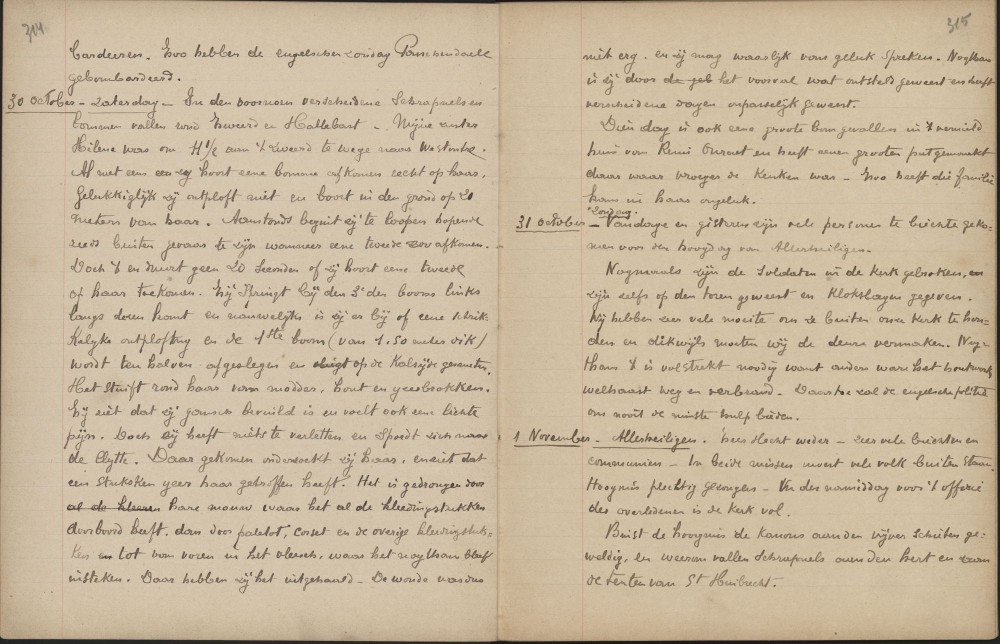 314.
bardeeren. Zoo hebben de engelschen zondag Passchendaele
gebombardeerd.
30 October - zaterdag - In den voornoen verscheidene Schrapnels en
bommen vallen rond Zweerd en Hallebast. Mijne zuster
Hélène was om 4 1/2 aan 't Zweerd te wege naar Westoutre.
Al met een zy hoort eene bomme afkomen recht op haar.
Gelukkiglijk zy ontploft niet en boort in den grond op 20
meters van haar. Aanstonds begint zy te loopen hopende
reeds buiten gevaar te zijn wanneer eene tweede zou afkomen.
Doch 't en duurt geen 20 Seconden of zy hoort eene tweede
op haar toekomen. Zij springt bij den 3e der boomen links
langs deren kant en nauwelijks is zy er bij of eene schrik-
kelyke ontploffing en de 1ste boom (van 1.50 meter dik)
wordt ten halven afgeslegen en vliegt op de Kalsijde gesmeten.
Het stuift rond haar van modder, hout en yzerbrokken.
Zij ziet dat zy gansch bevuild is en voelt ook eene lichte
pijn. Doch zij heeft niets te verletten en spoedt zich naar
de Clytte. Daar gekomen onderzoekt zij haar, en ziet dat
een stukske yzer haar getroffen heeft. Het is gedrongen door
al de kleeren hare mouw waar het al de kleedingstukken
doorboord heeft, dan door paletot, corset en de overige kleedingstuk-
ken en tot van voren in het vleesch, waar het nogthans bleef
uitsteken. Daar hebben zij het uitgehaald - De wonde was dus
315
niet erg. en zij mag waarlijk van geluk spreken. Nogthans
is zij door de geb het voorval wat ontsteld geweest en heeft
verscheidene dagen onpasselijk geweest.
Dien dag is ook eene groote bom gevallen in 't vernield
huis van Remi Onraet en heeft eenen grooten put gemaakt
daar waar vroeger de Keuken was - Zoo heeft die familie
kans in haar ongeluk.
31 October Zondag. - Vandage en gisteren zijn vele personen te biechte geko-
men voor den hoogdag van Allerheiligen.
Nogmaals zijn de Soldaten in de Kerk gebroken, en
zijn zelfs op den toren geweest en Klokslagen gegeven.
Wij hebben zeer vele moeite om ze buiten onze Kerk te hou-
den en dikwijls moeten wij de deuren vermaken. Nog-
thans 't is volstrekt noodig want anders ware het houtwerk
welhaast weg en verbrand. Daartoe zal de engelsche politie
ons nooit de minste hulp bieden.
1 November - Allerheiligen. Zeer slecht weder - zeer vele biechten en
communien - In beide missen moest vele volk buiten staan.
Hoogmis plechtig gezongen - In den namiddag voor 't officie
der overledenen is de Kerk vol.
Binst de hoogmis de kanons aan den vijver schieten ge-
weldig, en weerom vallen Schrapnels aan den Kert en aan
de tenten van St Huibrecht.